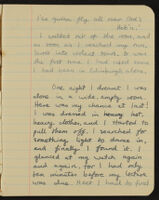 I walked out of the room, and
as soon as I reached my room,
burst into violent tears. It was
the first time I had cried since
I had been in Edinburgh alone.
One night I dreamt I was
alone in a wide empty room.
Here was my chance at last!
I was dressed in heavy hot,
heavy clothes, and I started to
pull them off. I searched for
something light to dance in,
and finally I found it. I
glanced at my watch again
and again, for I had only
ten minutes before my lecture
was due. I had to find